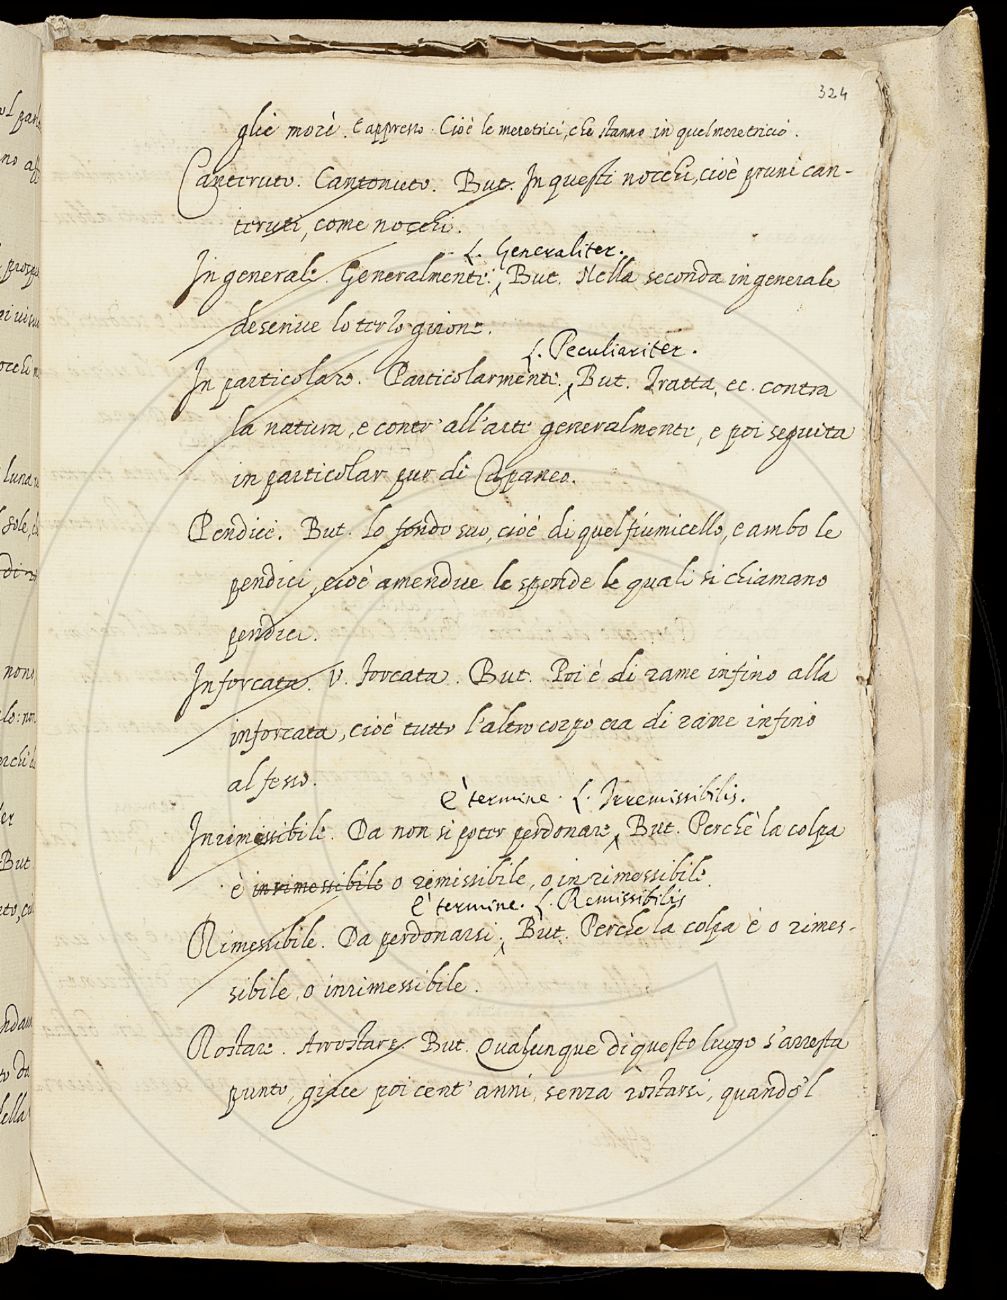 324
glie morì. E appresso. Cioè le meretrici, che stanno in quel meretricio.
Canteruto. Cantonuto. But. In questi nocchi, cioè pruni can-
teruti, come nocchi.
L. Generaliter.
In generale. Generalmente. But. Nella seconda in generale
descrive lo terzo girone.
L. Peculiariter.
In particolare. Particolarmente. But. Tratta, ec. contra
la natura, e contr'all'arte generalmente, e poi seguita
in particolar pur di Capaneo.
Pendice. But. Lo fondo suo, cioè di quel fiumicello, e ambo le
pendici, cioè amendue le sponde le quali si chiamano
pendici.
Inforcata. V. Forcata. But. Poi è di rame infino alla
inforcata, cioè tutto l'altro corpo era di rame infino
al fesso.
È termine. L. Irremissibilis.
Inrimessibile. Da non si poter perdonare. But. Perchè la colpa
è inrimessibile o remissibile, o inrimessibile.
È termine. L. Remissibilis
Rimessibile. Da perdonarsi. But. Perche la colpa è o rimes-
sibile, o inrimessibile.
Rostare. Arrostare. But. Qualunque di questo luogo s'arresta
punto, giace poi cent'anni, senza rostarsi, quando'l